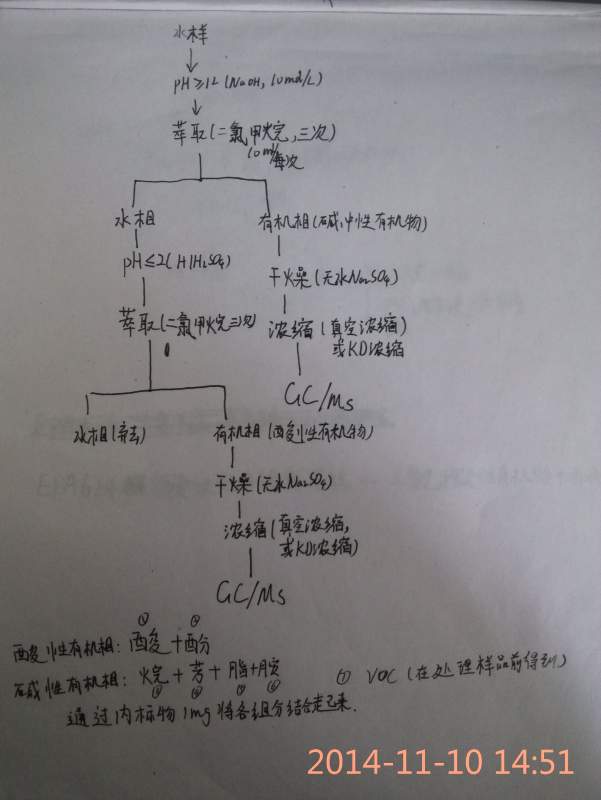 水样
pH≥12(NaOH, 10mol/L)
萃取(二氯甲烷,三次)
10ml/每次
水相
有机相(碱,中性有机物)
pH≤2(H2SO4)
干燥(无水Na2SO4)
萃取(二氯甲烷三次)
浓缩(真空浓缩)
或KD浓缩
GC/MS
水相(弃去)
有机相(酸性有机物)
干燥(无水Na2SO4)
浓缩(真空浓缩,
或KD浓缩)
GC/MS
酸性有机相:酸+酚
碱性有机相:烷+芳+脂+胺
① VOC(在处理样品前得到)
通过内标物1mg将各组分结合起来.
2014-11-10 14:51